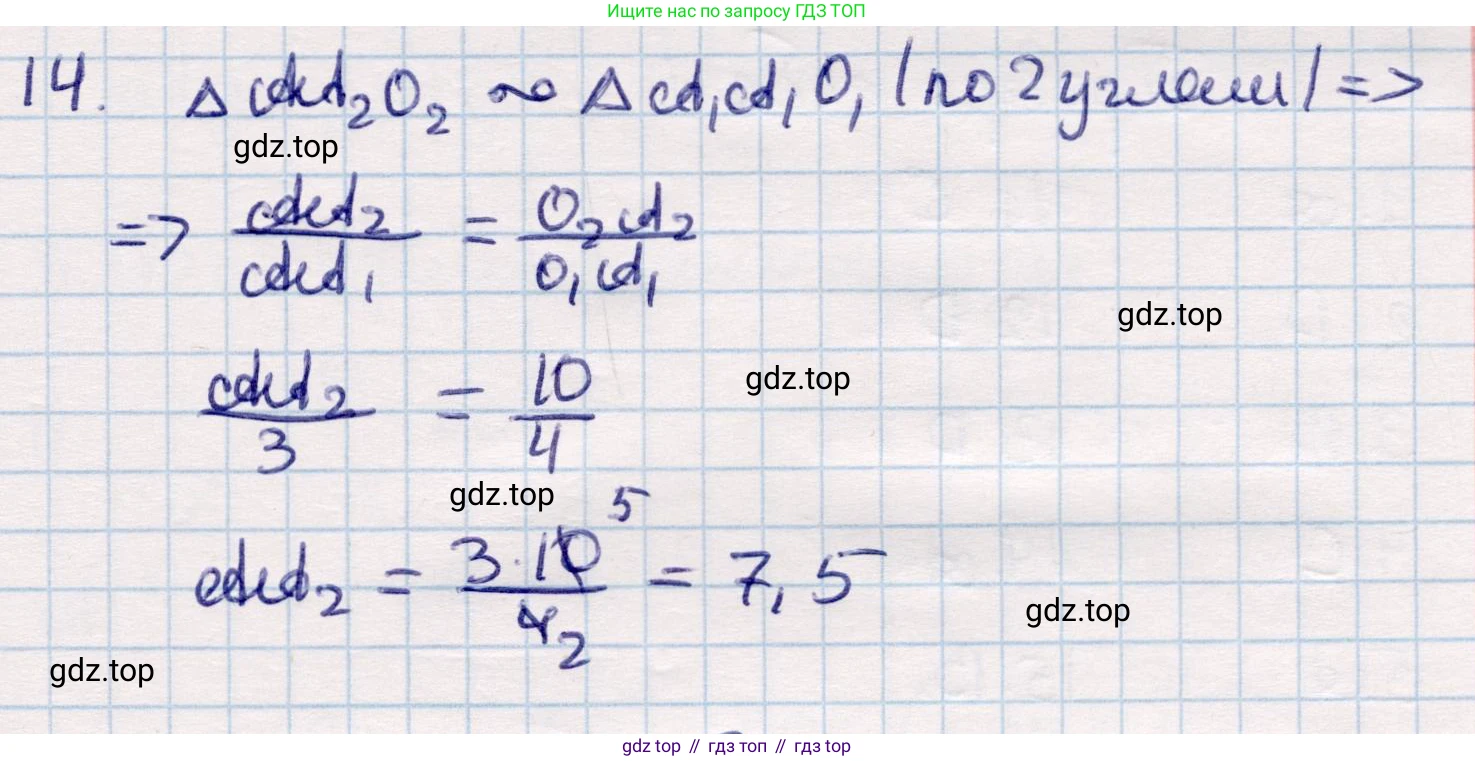 Ищите нас по запросу ГДЗ ТОП
14. Δ cdkd₂O₂ ∾ Δ cd₁cd₁O₁ (по 2 углам) =>
gdz.top
=> cdkd₂ / cdkd₁ = O₂cd₂ / O₁cd₁
gdz.top
cdkd₂ / 3 = 10 / 4
gdz.top
gdz.top
cdkd₂ = 3·10 5 / 4 2 = 7,5
gdz.top
gdz.top
gdz top // гдз топ // gdz top